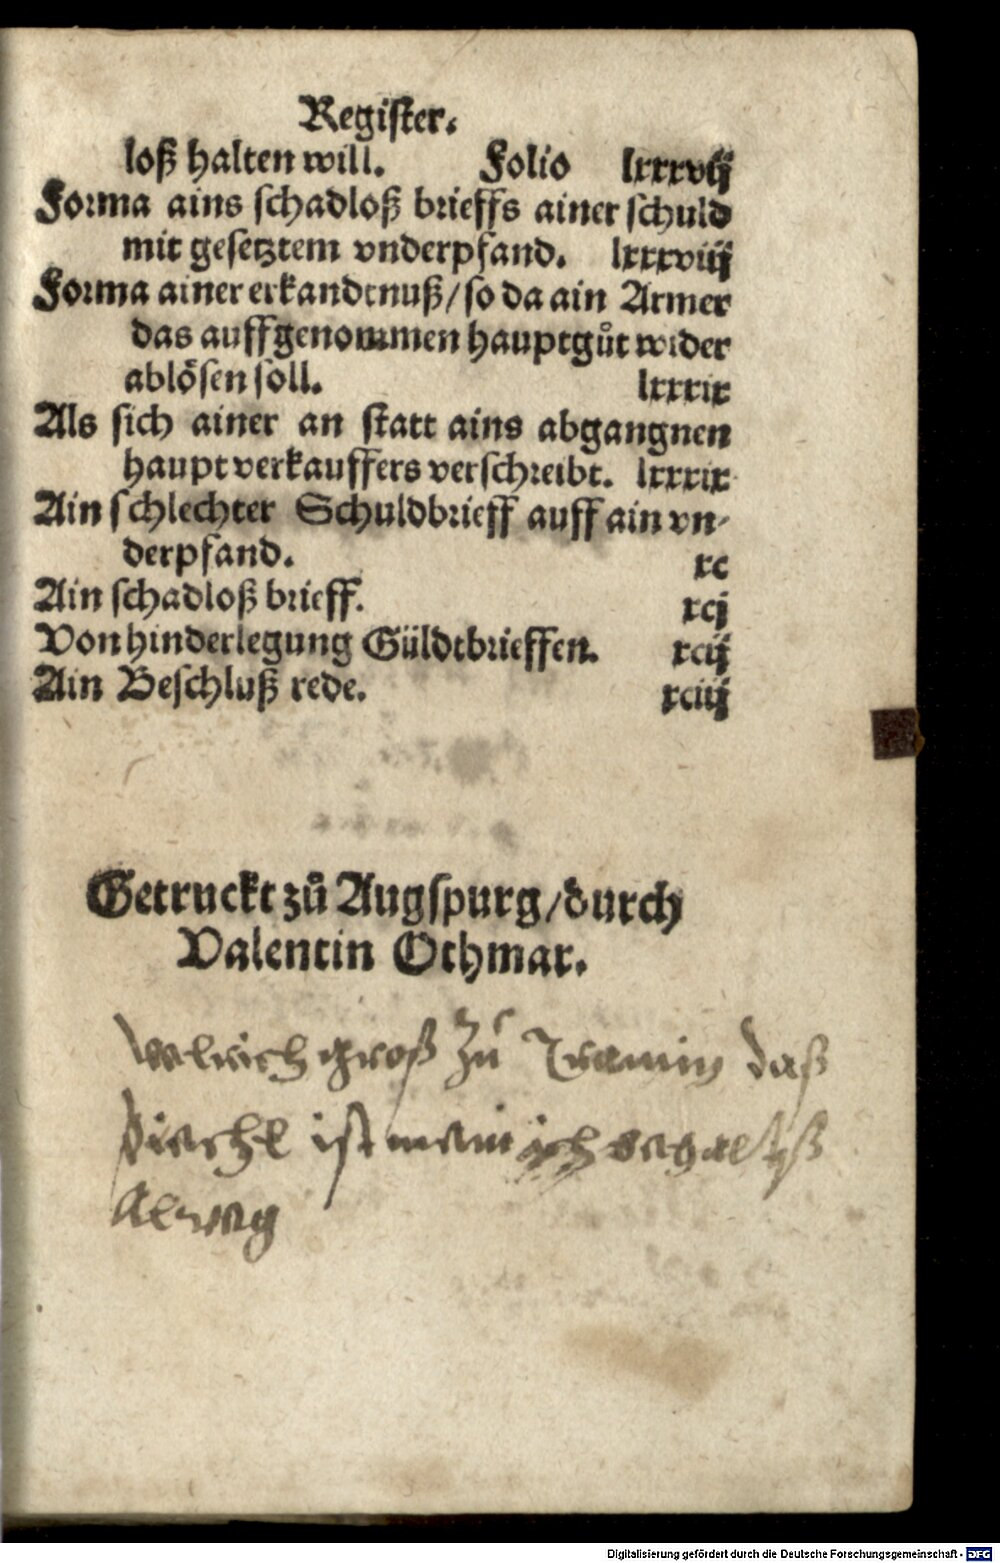 Register.
loß halten will. Folio lxxxvij
Forma ains schadloß brieffs ainer schuld
mit gesetztem vnderpfand. lxxxviij
Forma ainer erkandtnuß/ so da ain Armer
das auffgenommen hauptgůt wider
ablösen soll. lxxxix
Als sich ainer an statt ains abgangnen
haupt verkauffers verschreibt. lxxxix
Ain schlechter Schuldbrieff auff ain vn-
derpfand. xc
Ain schadloß brieff. xcj
Von hinderlegung Güldtbrieffen. xcij
Ain Beschluß rede. xciij
Getruckt zů Augspurg/ durch
Valentin Othmar.
groß Zu Tramin daß
piechl ist mein ich
Alweg
Digitalisierung gefördert durch die Deutsche Forschungsgemeinschaft - DFG